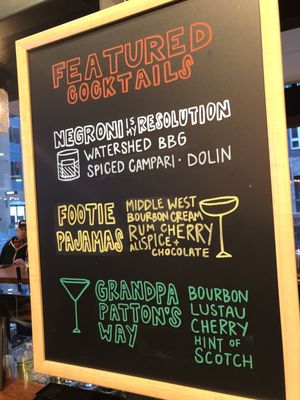 FEATURED
COCKTAILS
NEGRONI IS MY RESOLUTION
WATERSHED BBG
SPICED CAMPARI · DOLIN
FOOTIE
PAJAMAS
MIDDLE WEST
BOURBON CREAM
RUM CHERRY
ALLSPICE +
CHOCOLATE
GRANDPA
PATTON'S
WAY
BOURBON
LUSTAU
CHERRY
HINT OF
SCOTCH